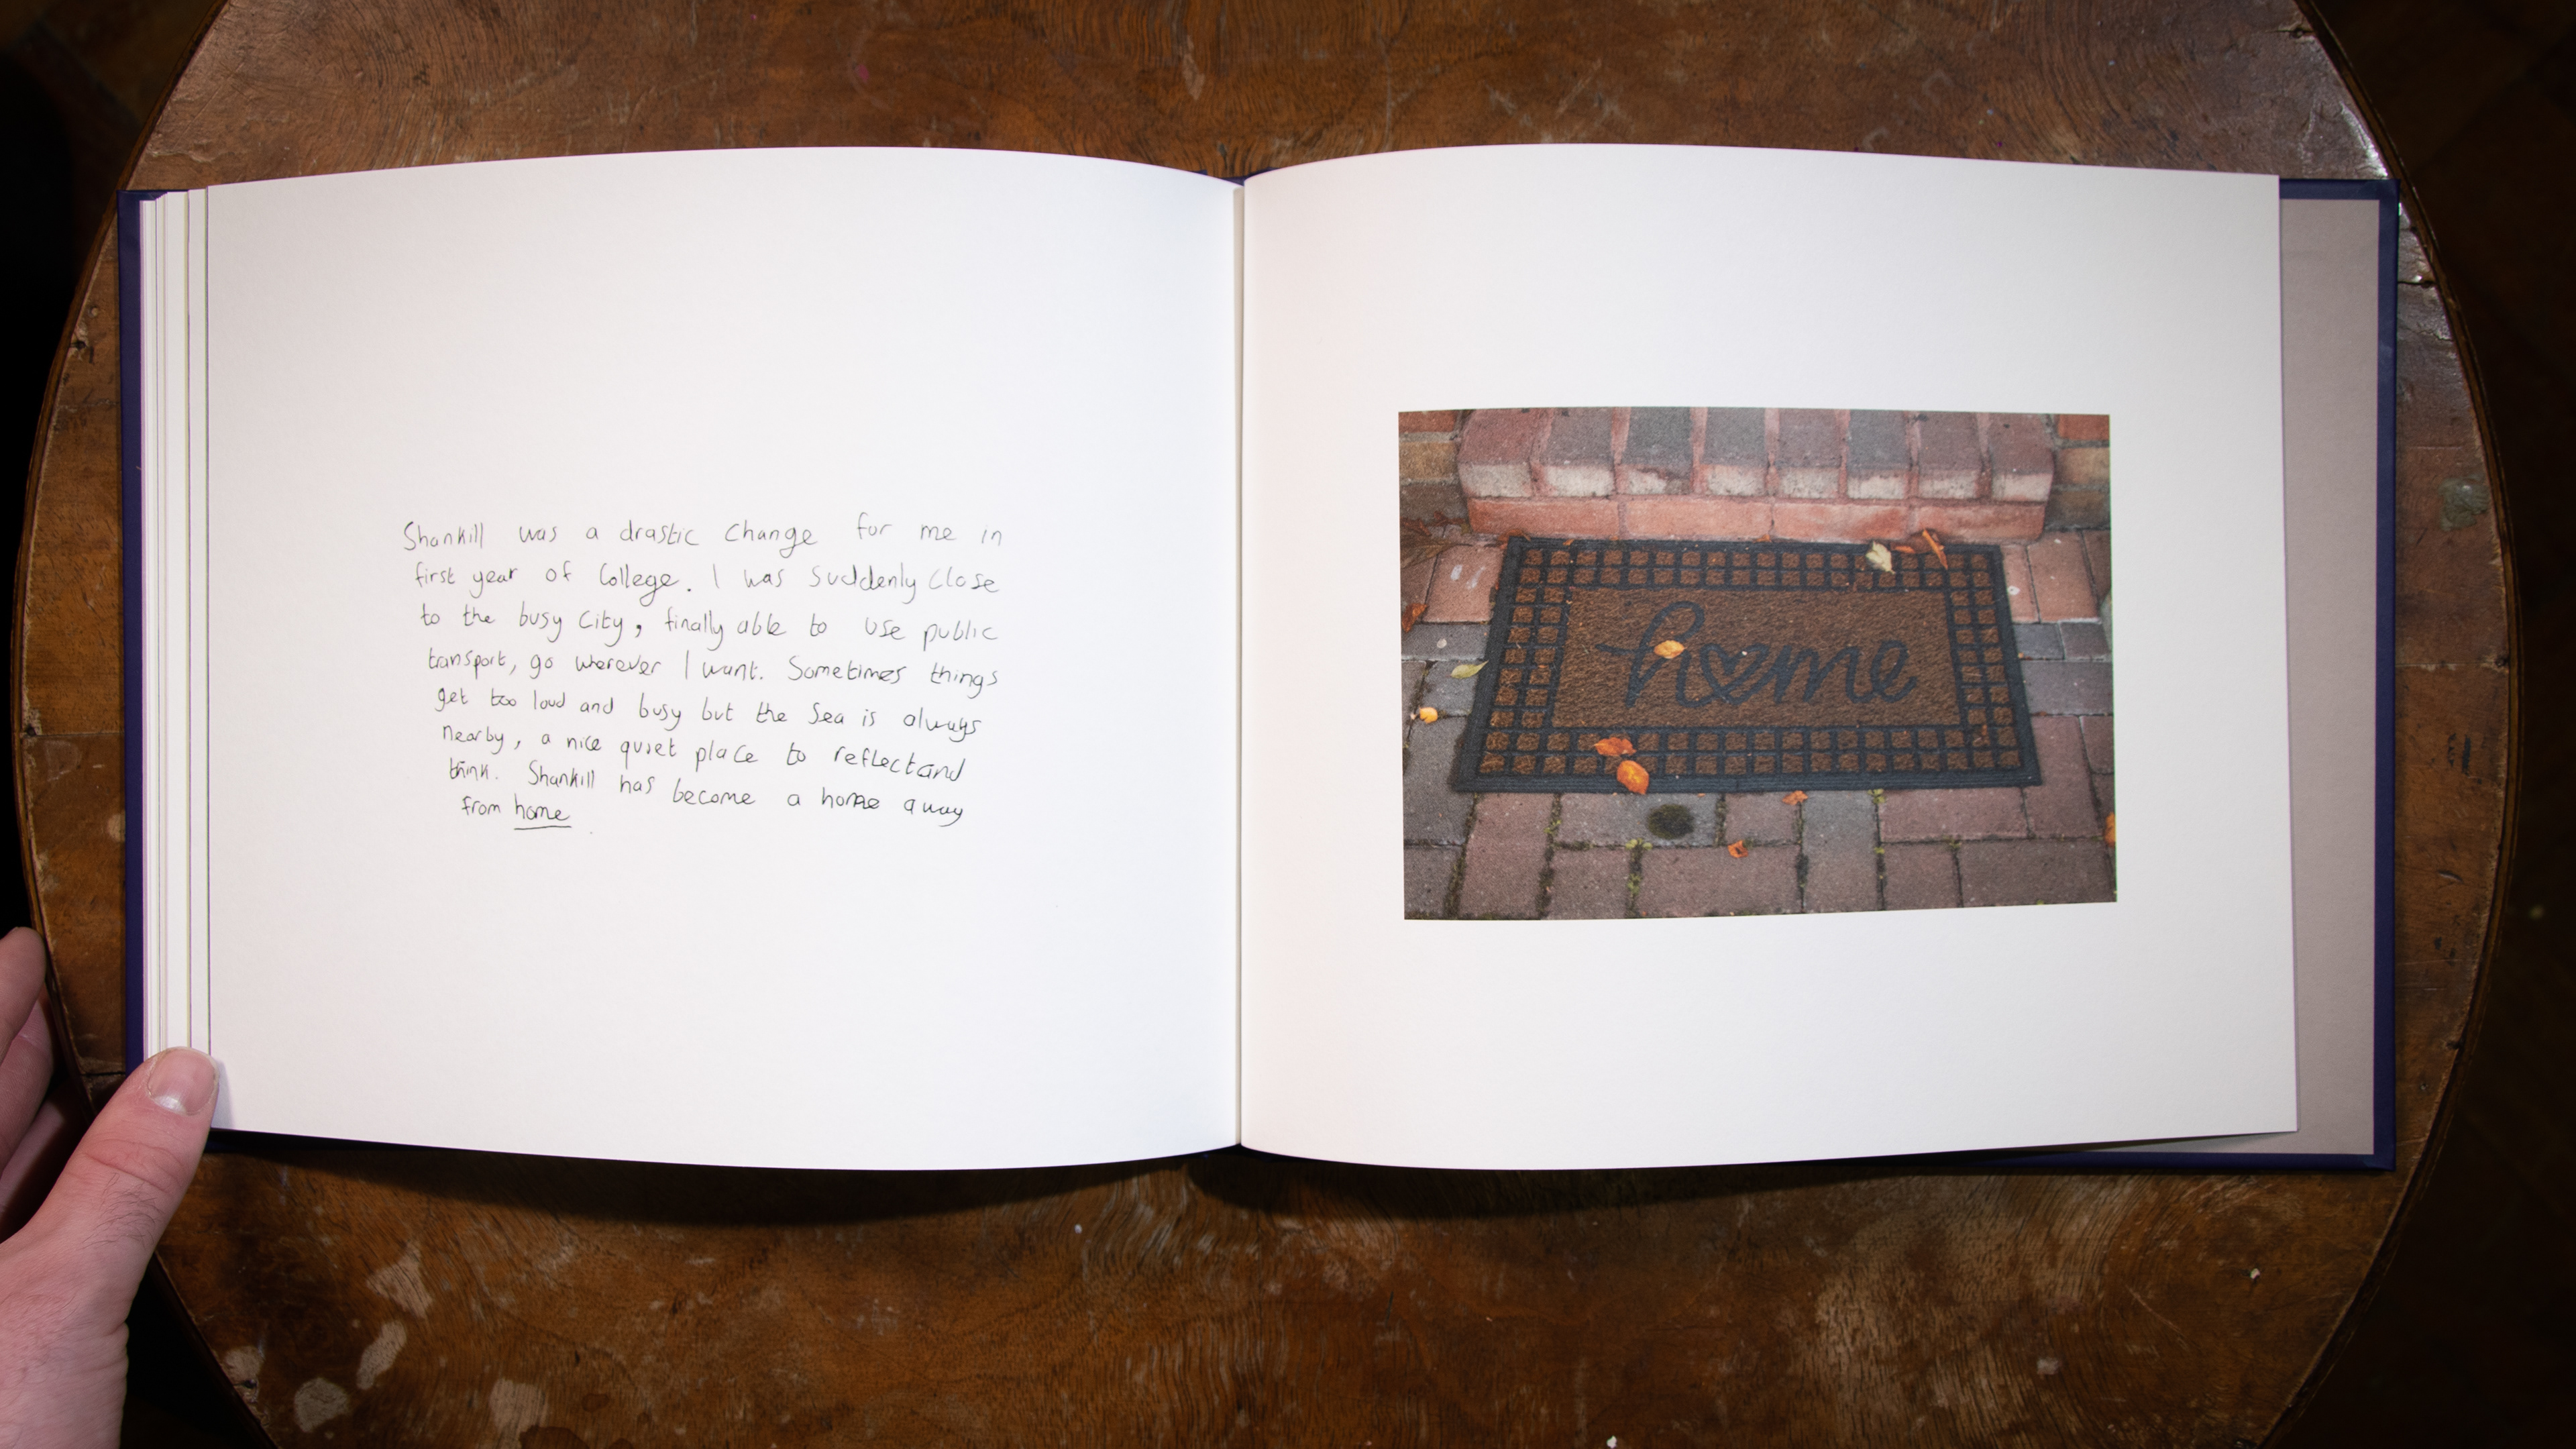 Shankill was a drastic change for me in
first year of College. I was suddenly close
to the busy City, finally able to use public
transport, go wherever I want. Sometimes things
get too loud and busy but the Sea is always
nearby, a nice quiet place to reflect and
think. Shankill has become a home away
from home
home